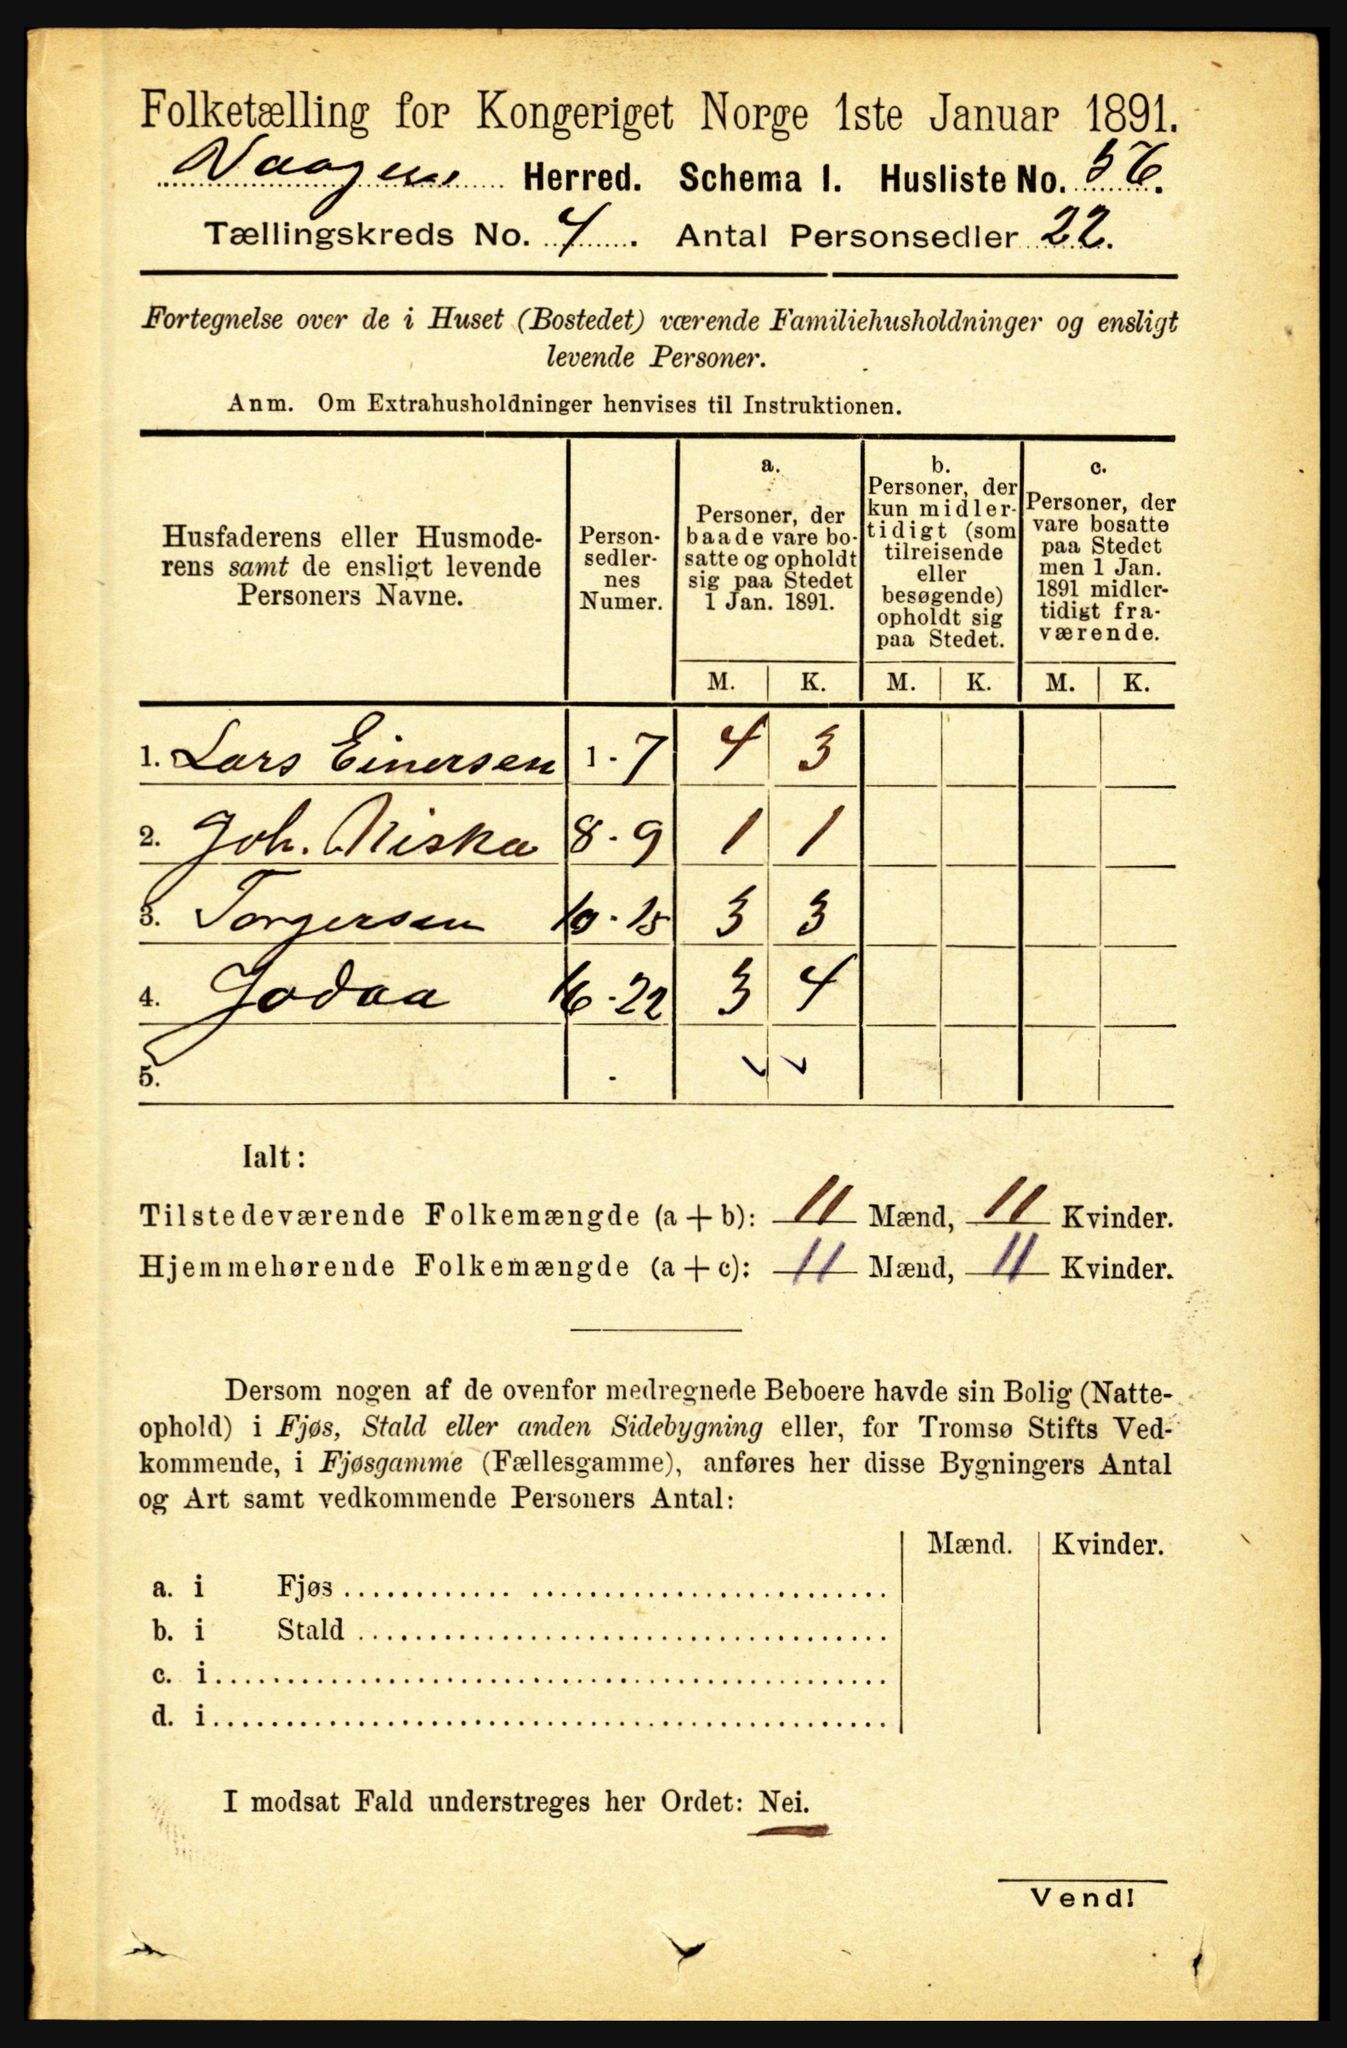 Folketælling for Kongeriget Norge 1ste Januar 1891.
Vaagene Herred. Schema I. Husliste No. 56.
Tællingskreds No. 4. Antal Personsedler 22.
Fortegnelse over de i Huset (Bostedet) værende Familiehusholdninger og ensligt
levende Personer.
Anm. Om Extrahusholdninger henvises til Instruktionen.
Husfaderens eller Husmode-
rens samt de ensligt levende
Personers Navne.
Person-
sedler-
nes
Numer.
a.
Personer, der
baade vare bo-
satte og opholdt
sig paa Stedet
1 Jan. 1891.
b.
Personer, der
kun midler-
tidigt (som
tilreisende
eller
besøgende)
opholdt sig
paa Stedet.
c.
Personer, der
vare bosatte
paa Stedet
men 1 Jan.
1891 midler-
tidigt fra-
værende.
M. K. M. K. M. K.
1. Lars Einersen 1 - 7 4 3
2. Joh. Niska 8 - 9 1 1
3. Torgersen 10 - 15 3 3
4. Jodaa 16 - 22 3 4
5. -
Ialt:
Tilstedeværende Folkemængde (a + b): 11 Mænd, 11 Kvinder.
Hjemmehørende Folkemængde (a + c): 11 Mænd, 11 Kvinder.
Dersom nogen af de ovenfor medregnede Beboere havde sin Bolig (Natte-
ophold) i Fjøs, Stald eller anden Sidebygning eller, for Tromsø Stifts Ved-
kommende, i Fjøsgamme (Fællesgamme), anføres her disse Bygningers Antal
og Art samt vedkommende Personers Antal:
Mænd. Kvinder.
a. i Fjøs
b. i Stald
c. i
d. i
I modsat Fald understreges her Ordet: Nei.
Vend!